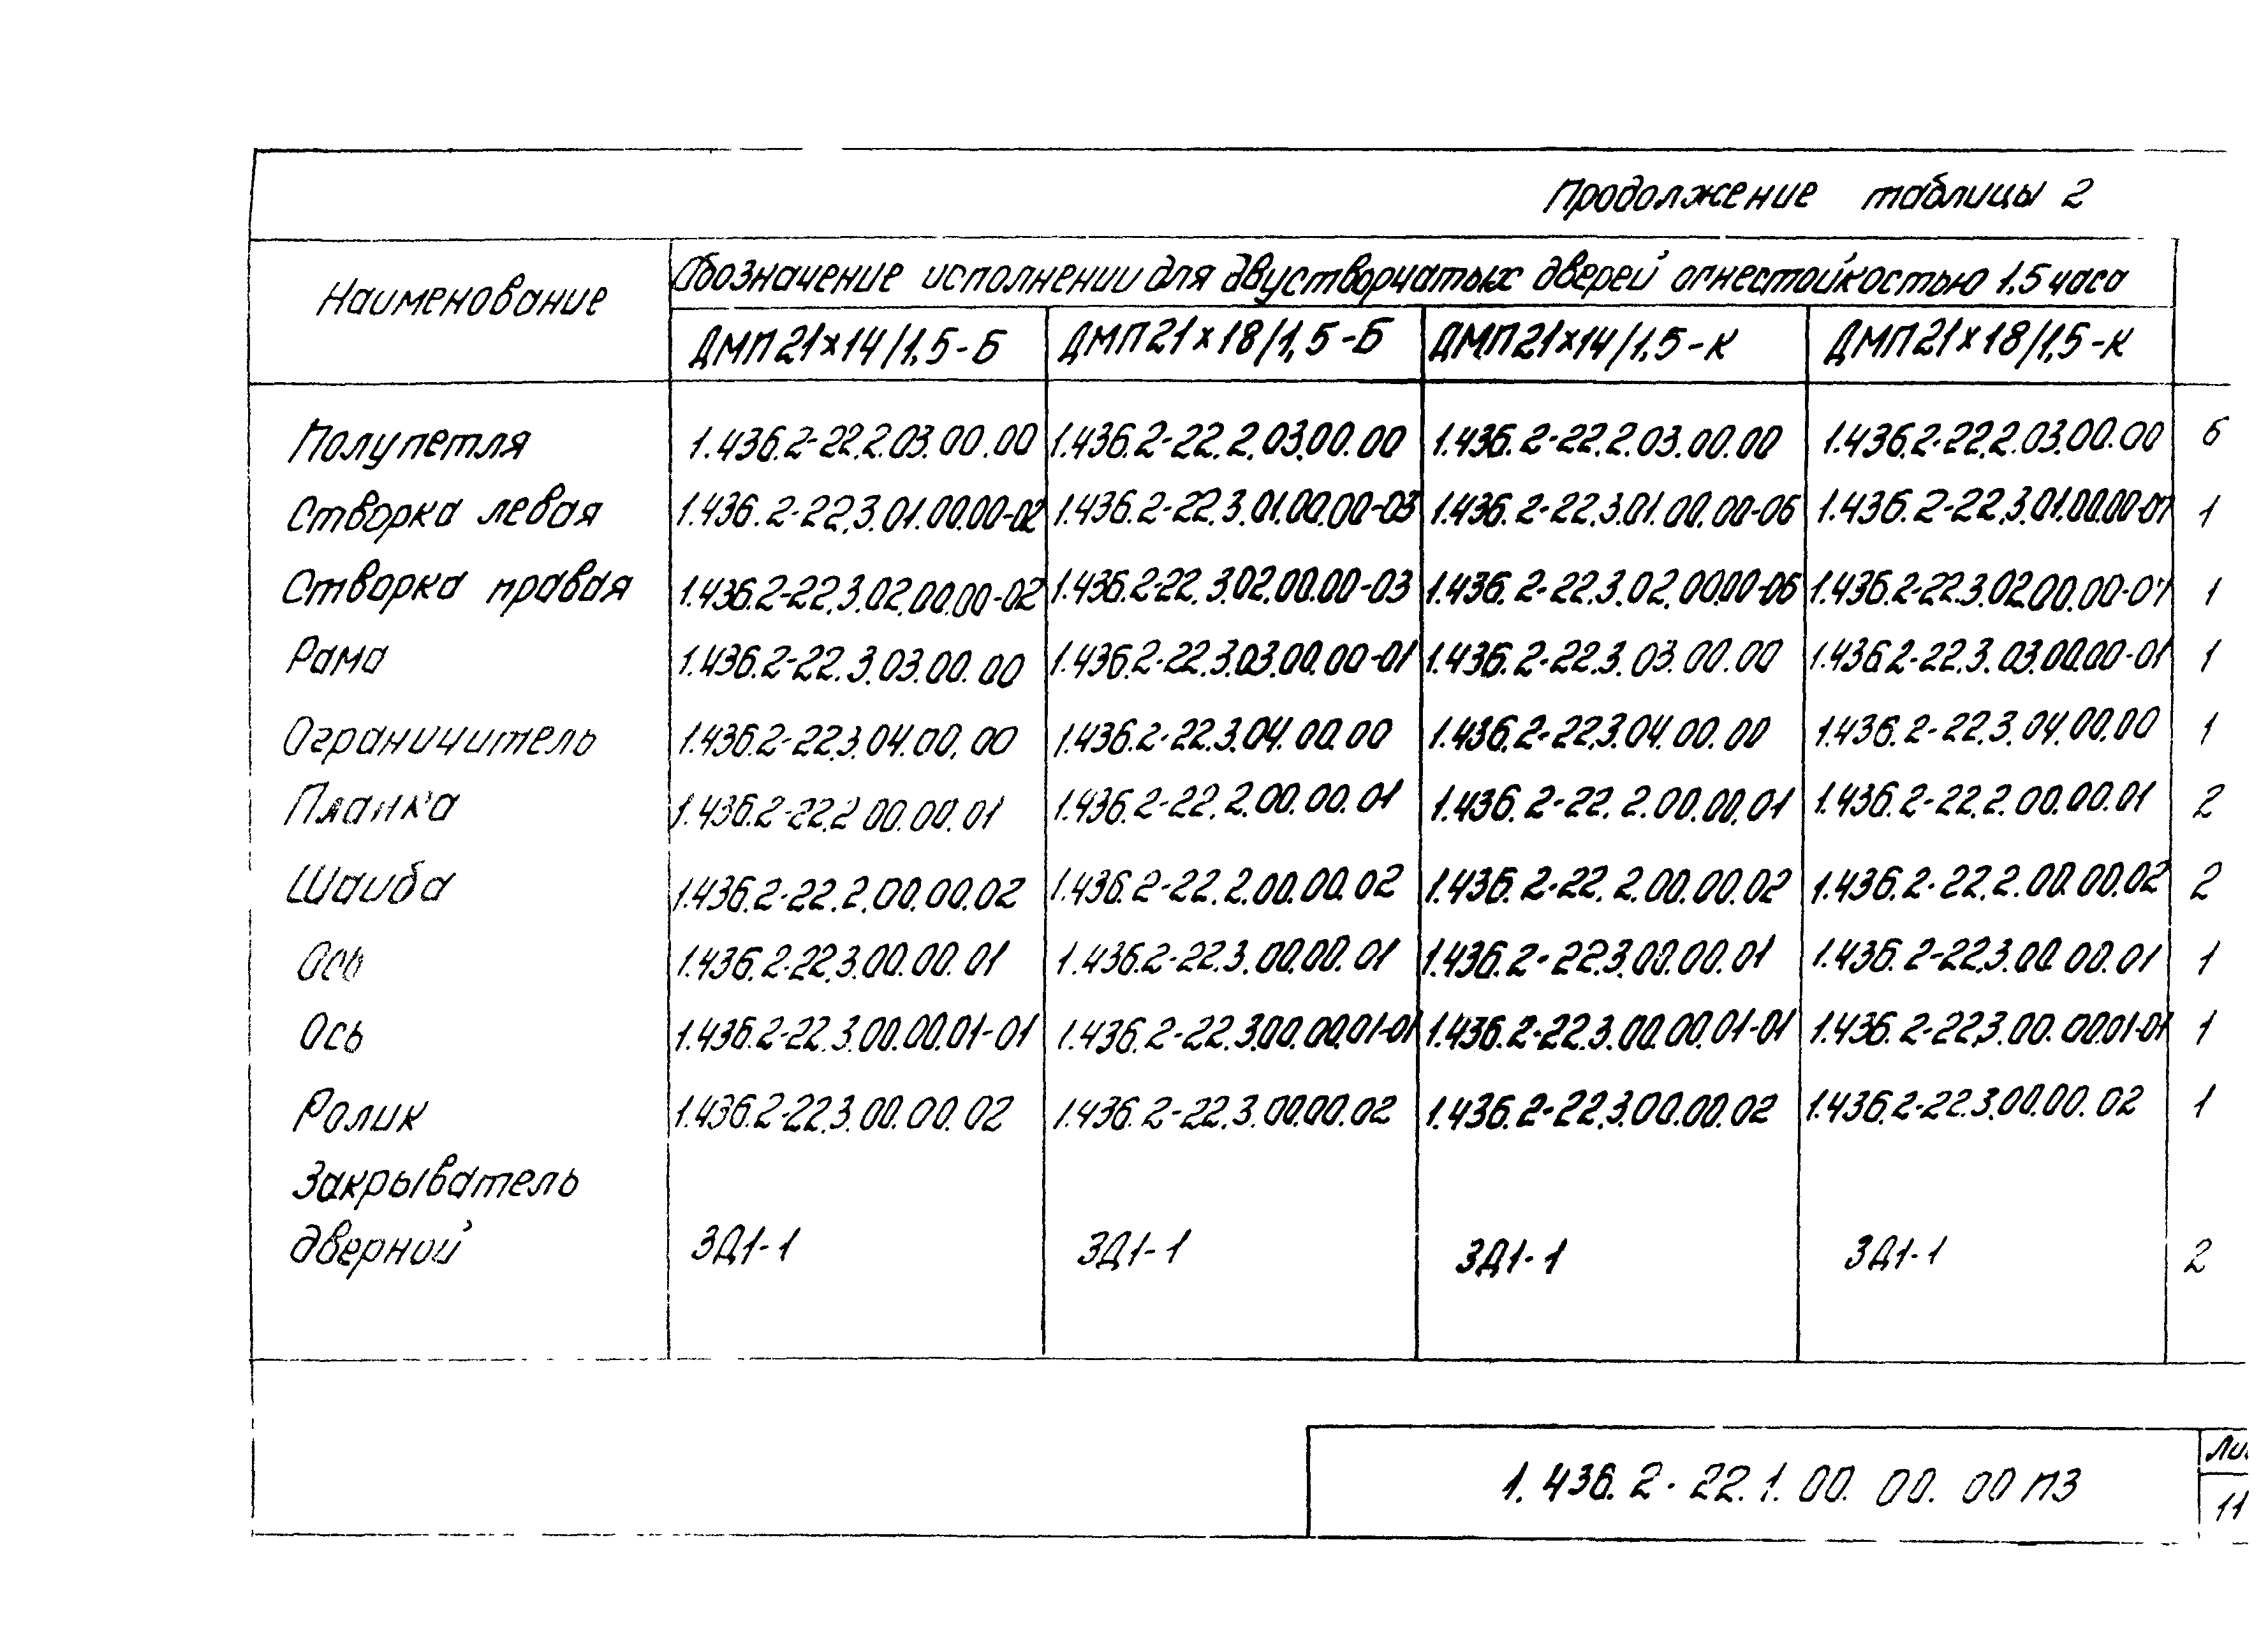 Продолжение таблицы 2
Наименование
Обозначение исполнении для двустворчатых дверей огнестойкостью 1,5 часа
ДМП21×14/1,5-Б ДМП21×18/1,5-Б ДМП21×14/1,5-К ДМП21×18/1,5-К
Полупетля 1.436.2-22.2.03.00.00 1.436.2-22.2.03.00.00 1.436.2-22.2.03.00.00 1.436.2-22.2.03.00.00 6
Створка левая 1.436.2-22.3.01.00.00-02 1.436.2-22.3.01.00.00-03 1.436.2-22.3.01.00.00-06 1.436.2-22.3.01.00.00-07 1
Створка правая 1.436.2-22.3.02.00.00-02 1.436.2-22.3.02.00.00-03 1.436.2-22.3.02.00.00-06 1.436.2-22.3.02.00.00-07 1
Рама 1.436.2-22.3.03.00.00 1.436.2-22.3.03.00.00-01 1.436.2-22.3.03.00.00 1.436.2-22.3.03.00.00-01 1
Ограничитель 1.436.2-22.3.04.00.00 1.436.2-22.3.04.00.00 1.436.2-22.3.04.00.00 1.436.2-22.3.04.00.00 1
Планка 1.436.2-22.2.00.00.01 1.436.2-22.2.00.00.01 1.436.2-22.2.00.00.01 1.436.2-22.2.00.00.01 2
Шаиба 1.436.2-22.2.00.00.02 1.436.2-22.2.00.00.02 1.436.2-22.2.00.00.02 1.436.2-22.2.00.00.02 2
Ось 1.436.2-22.3.00.00.01 1.436.2-22.3.00.00.01 1.436.2-22.3.00.00.01 1.436.2-22.3.00.00.01 1
Ось 1.436.2-22.3.00.00.01-01 1.436.2-22.3.00.00.01-01 1.436.2-22.3.00.00.01-01 1.436.2-22.3.00.00.01-01 1
Ролик 1.436.2-22.3.00.00.02 1.436.2-22.3.00.00.02 1.436.2-22.3.00.00.02 1.436.2-22.3.00.00.02 1
Закрыватель
дверной ЗД1-1 ЗД1-1 ЗД1-1 ЗД1-1 2
1.436.2-22.1.00.00.00 ПЗ
11